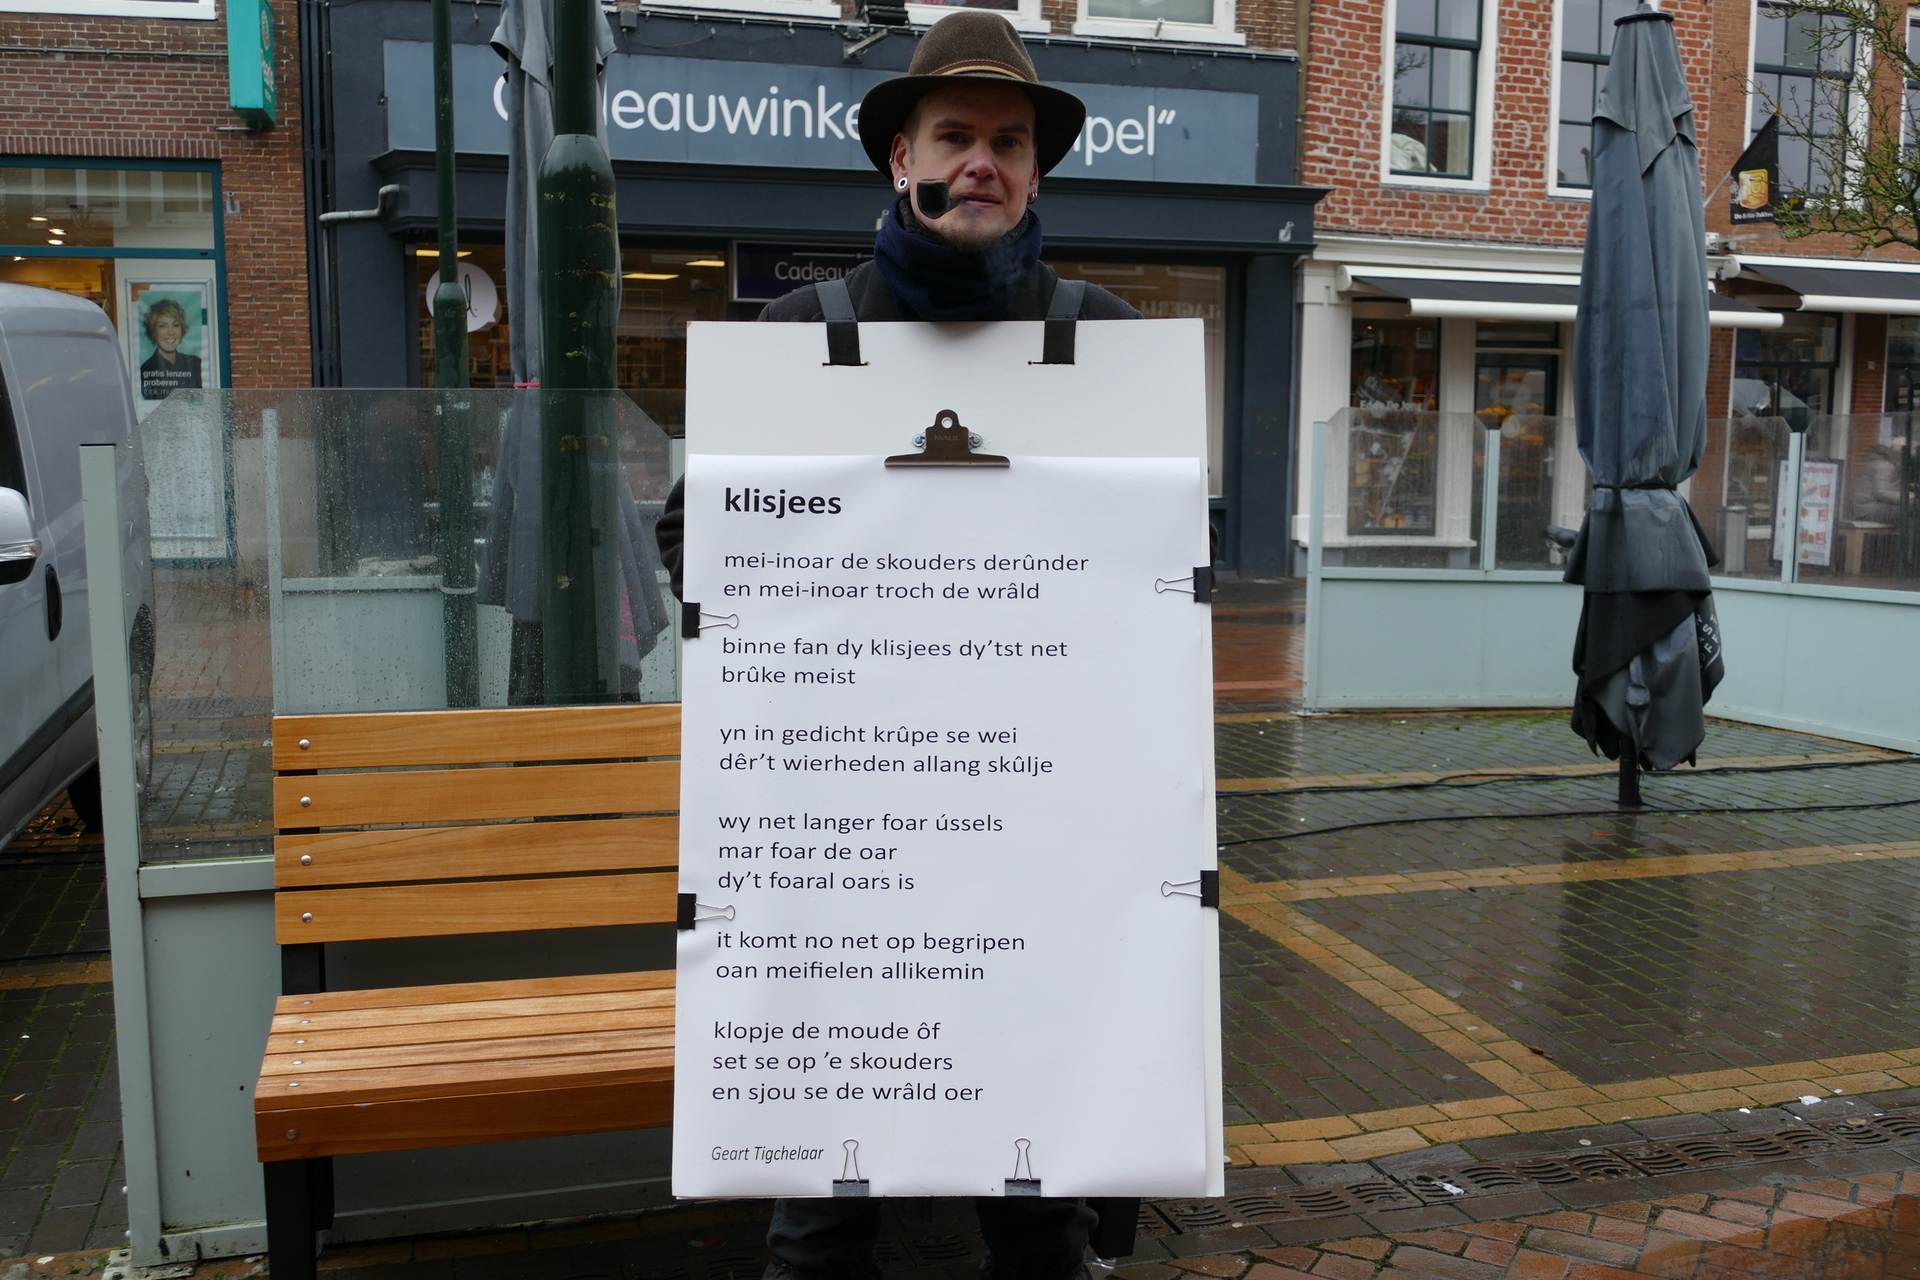 deauwinke
pel"
Cadeau
gratis lenzen
proberen
MAUL
klisjees
mei-inoar de skouders derûnder
en mei-inoar troch de wrâld
binne fan dy klisjees dy'tst net
brûke meist
yn in gedicht krûpe se wei
dêr't wierheden allang skûlje
wy net langer foar ússels
mar foar de oar
dy't foaral oars is
it komt no net op begripen
oan meifielen allikemin
klopje de moude ôf
set se op 'e skouders
en sjou se de wrâld oer
Geart Tigchelaar